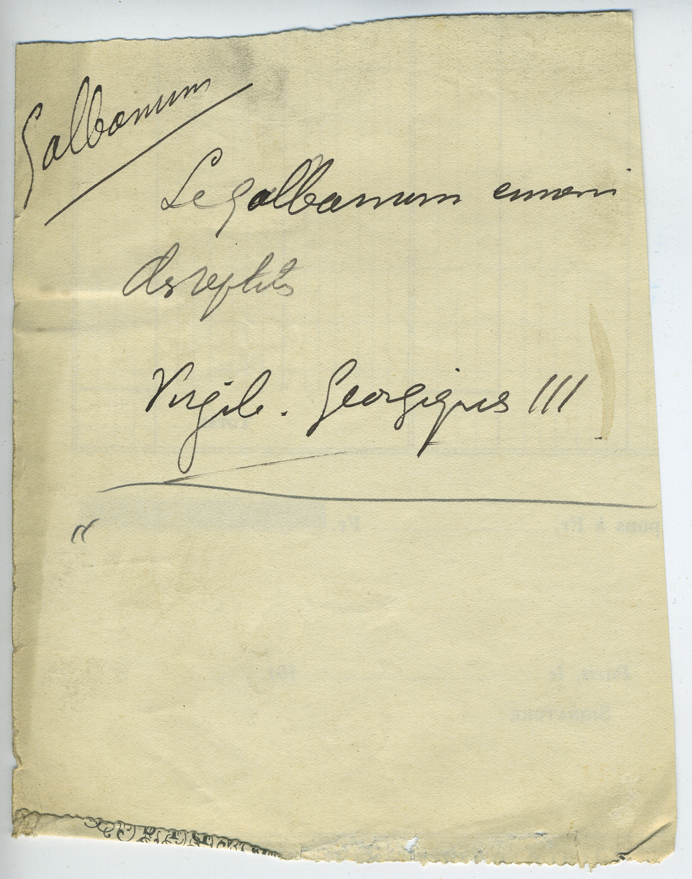 Galbanum
Le galbanum ennemi
des reptiles
Virgile. Georgiques III
"